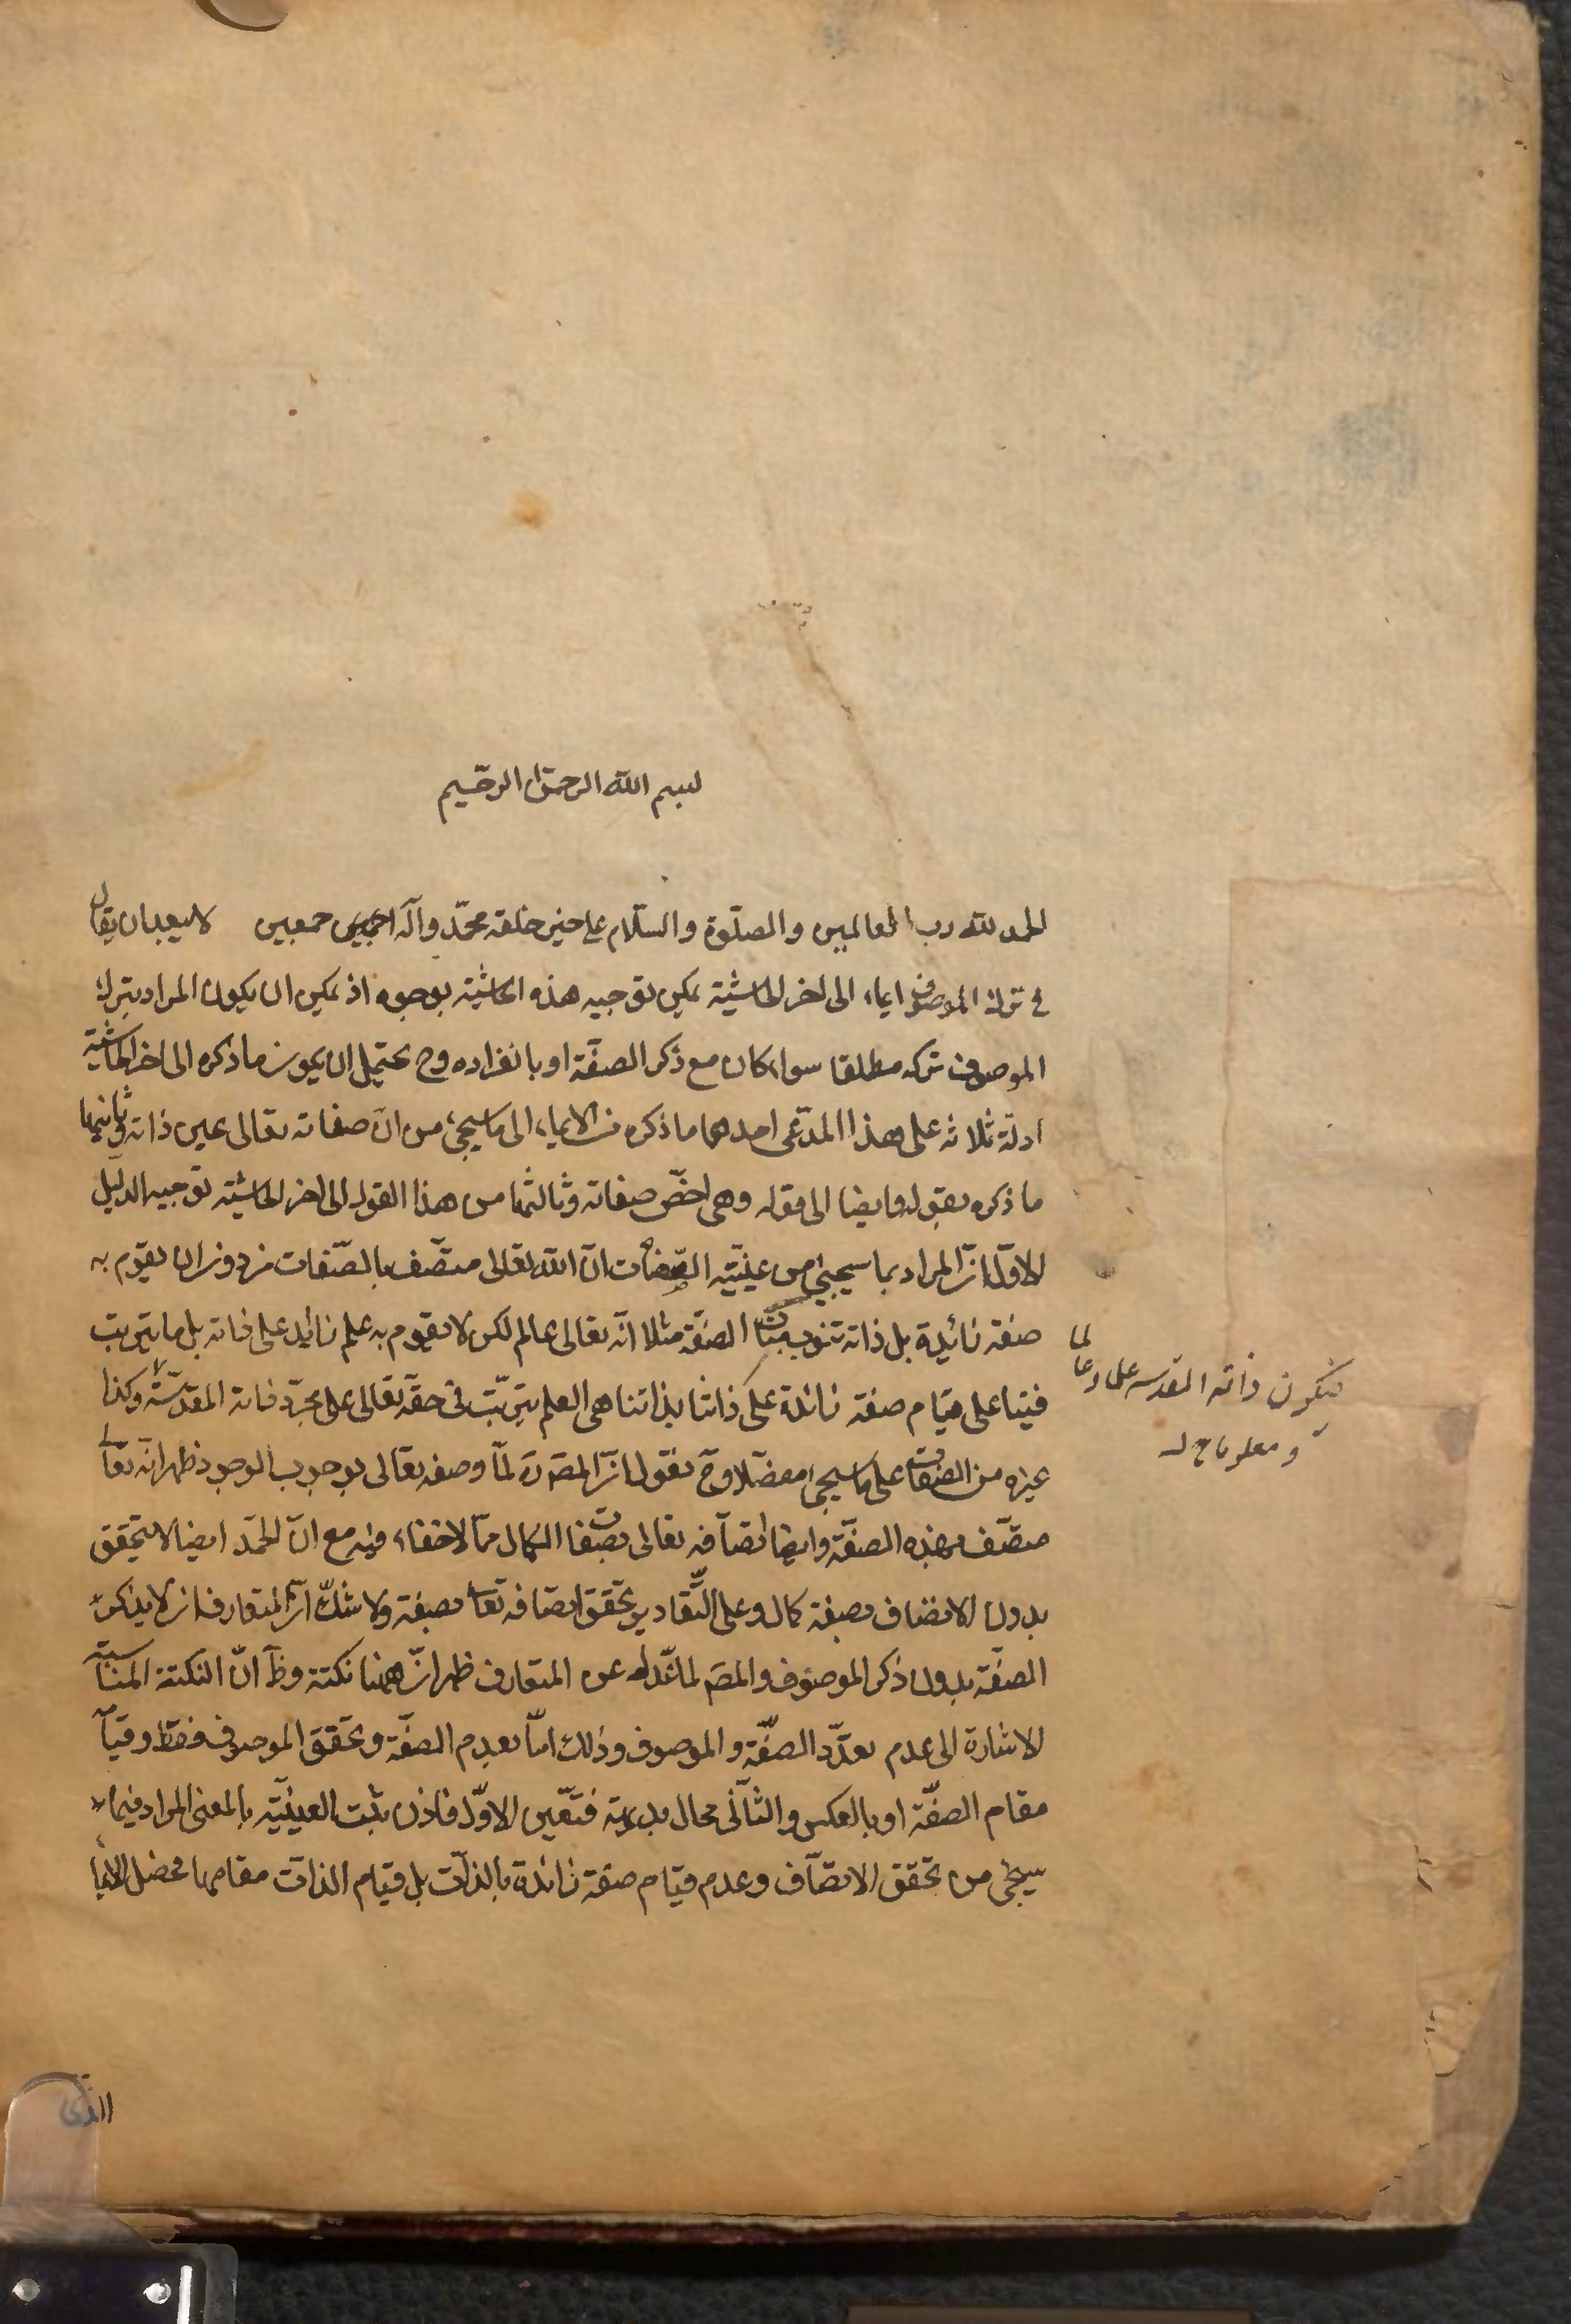 بسم الله الرحمن الرحيم
الحمد لله رب العالمين والصلوة والسلام على خير خلقه محمد وآله اجمعين لا يبعد ان يقال
في ترك الموصوف ايماء الى اخر الحاشية يمكن توجيه هذه الحاشية بوجوه اذ يمكن ان يكون المراد بترك
الموصوف تركه مطلقا سواء كان مع ذكر الصفة او بانفراده وح يحتمل ان يكون ما ذكره الى اخر الحاشية
ادلة ثلاثه على هذا المدعى احدهما ما ذكره من الايماء الى ما سيجئ من ان صفاته تعالى عين ذاته وثانيها
ما ذكره بقوله وايضا الى قوله وهى اخص صفاته وثالثها من هذا القول الى اخر الحاشية توجيه الدليل
الاول ان المراد بما سيجيئ من عينية الصفات ان الله تعالى متصف بالصفات من دون ان يقوم به
صفة زائدة بل ذاته تنوب مناب الصفة مثلا انه تعالى عالم لكن لا يقوم به علم زائد على ذاته بل ما يترتب
فينا على قيام صفة زائدة على ذاتنا بذاتنا هى العلم يترتب في حقه تعالى على مجرد ذاته المقدسة وكذا
فيكون ذاته المقدسه علما وعالما
ومعلوما
غيره من الصفات على ما سيجئ مفصلا وح نقول ان المص ره لما وصفه تعالى بوجوب الوجود ظهر انه تعا
متصف بهذه الصفة وايضا اتصافه تعالى بصفات الكمال مما لا خفاء فيه مع ان الحمد ايضا لا يتحقق
بدون الاتصاف بصفة كمال وعلى التقادير تحقق اتصافه تعا بصفة ولا شك ان المتعارف ان لا يذكر
الصفة بدون ذكر الموصوف والمص لما عدل عن المتعارف ظهر ان ههنا نكتة وظ ان النكتة المناسبة
الاشارة الى عدم تعدد الصفة والموصوف وذلك اما بعدم الصفة وتحقق الموصوف فقط وقيا
مقام الصفة او بالعكس والثاني محال بديهة فتعين الاول فاذن يثبت العينية بالمعنى المراد فيما
سيجئ من تحقق الاتصاف وعدم قيام صفة زائدة بالذات بل قيام الذات مقامها فحصل الايما
الذى